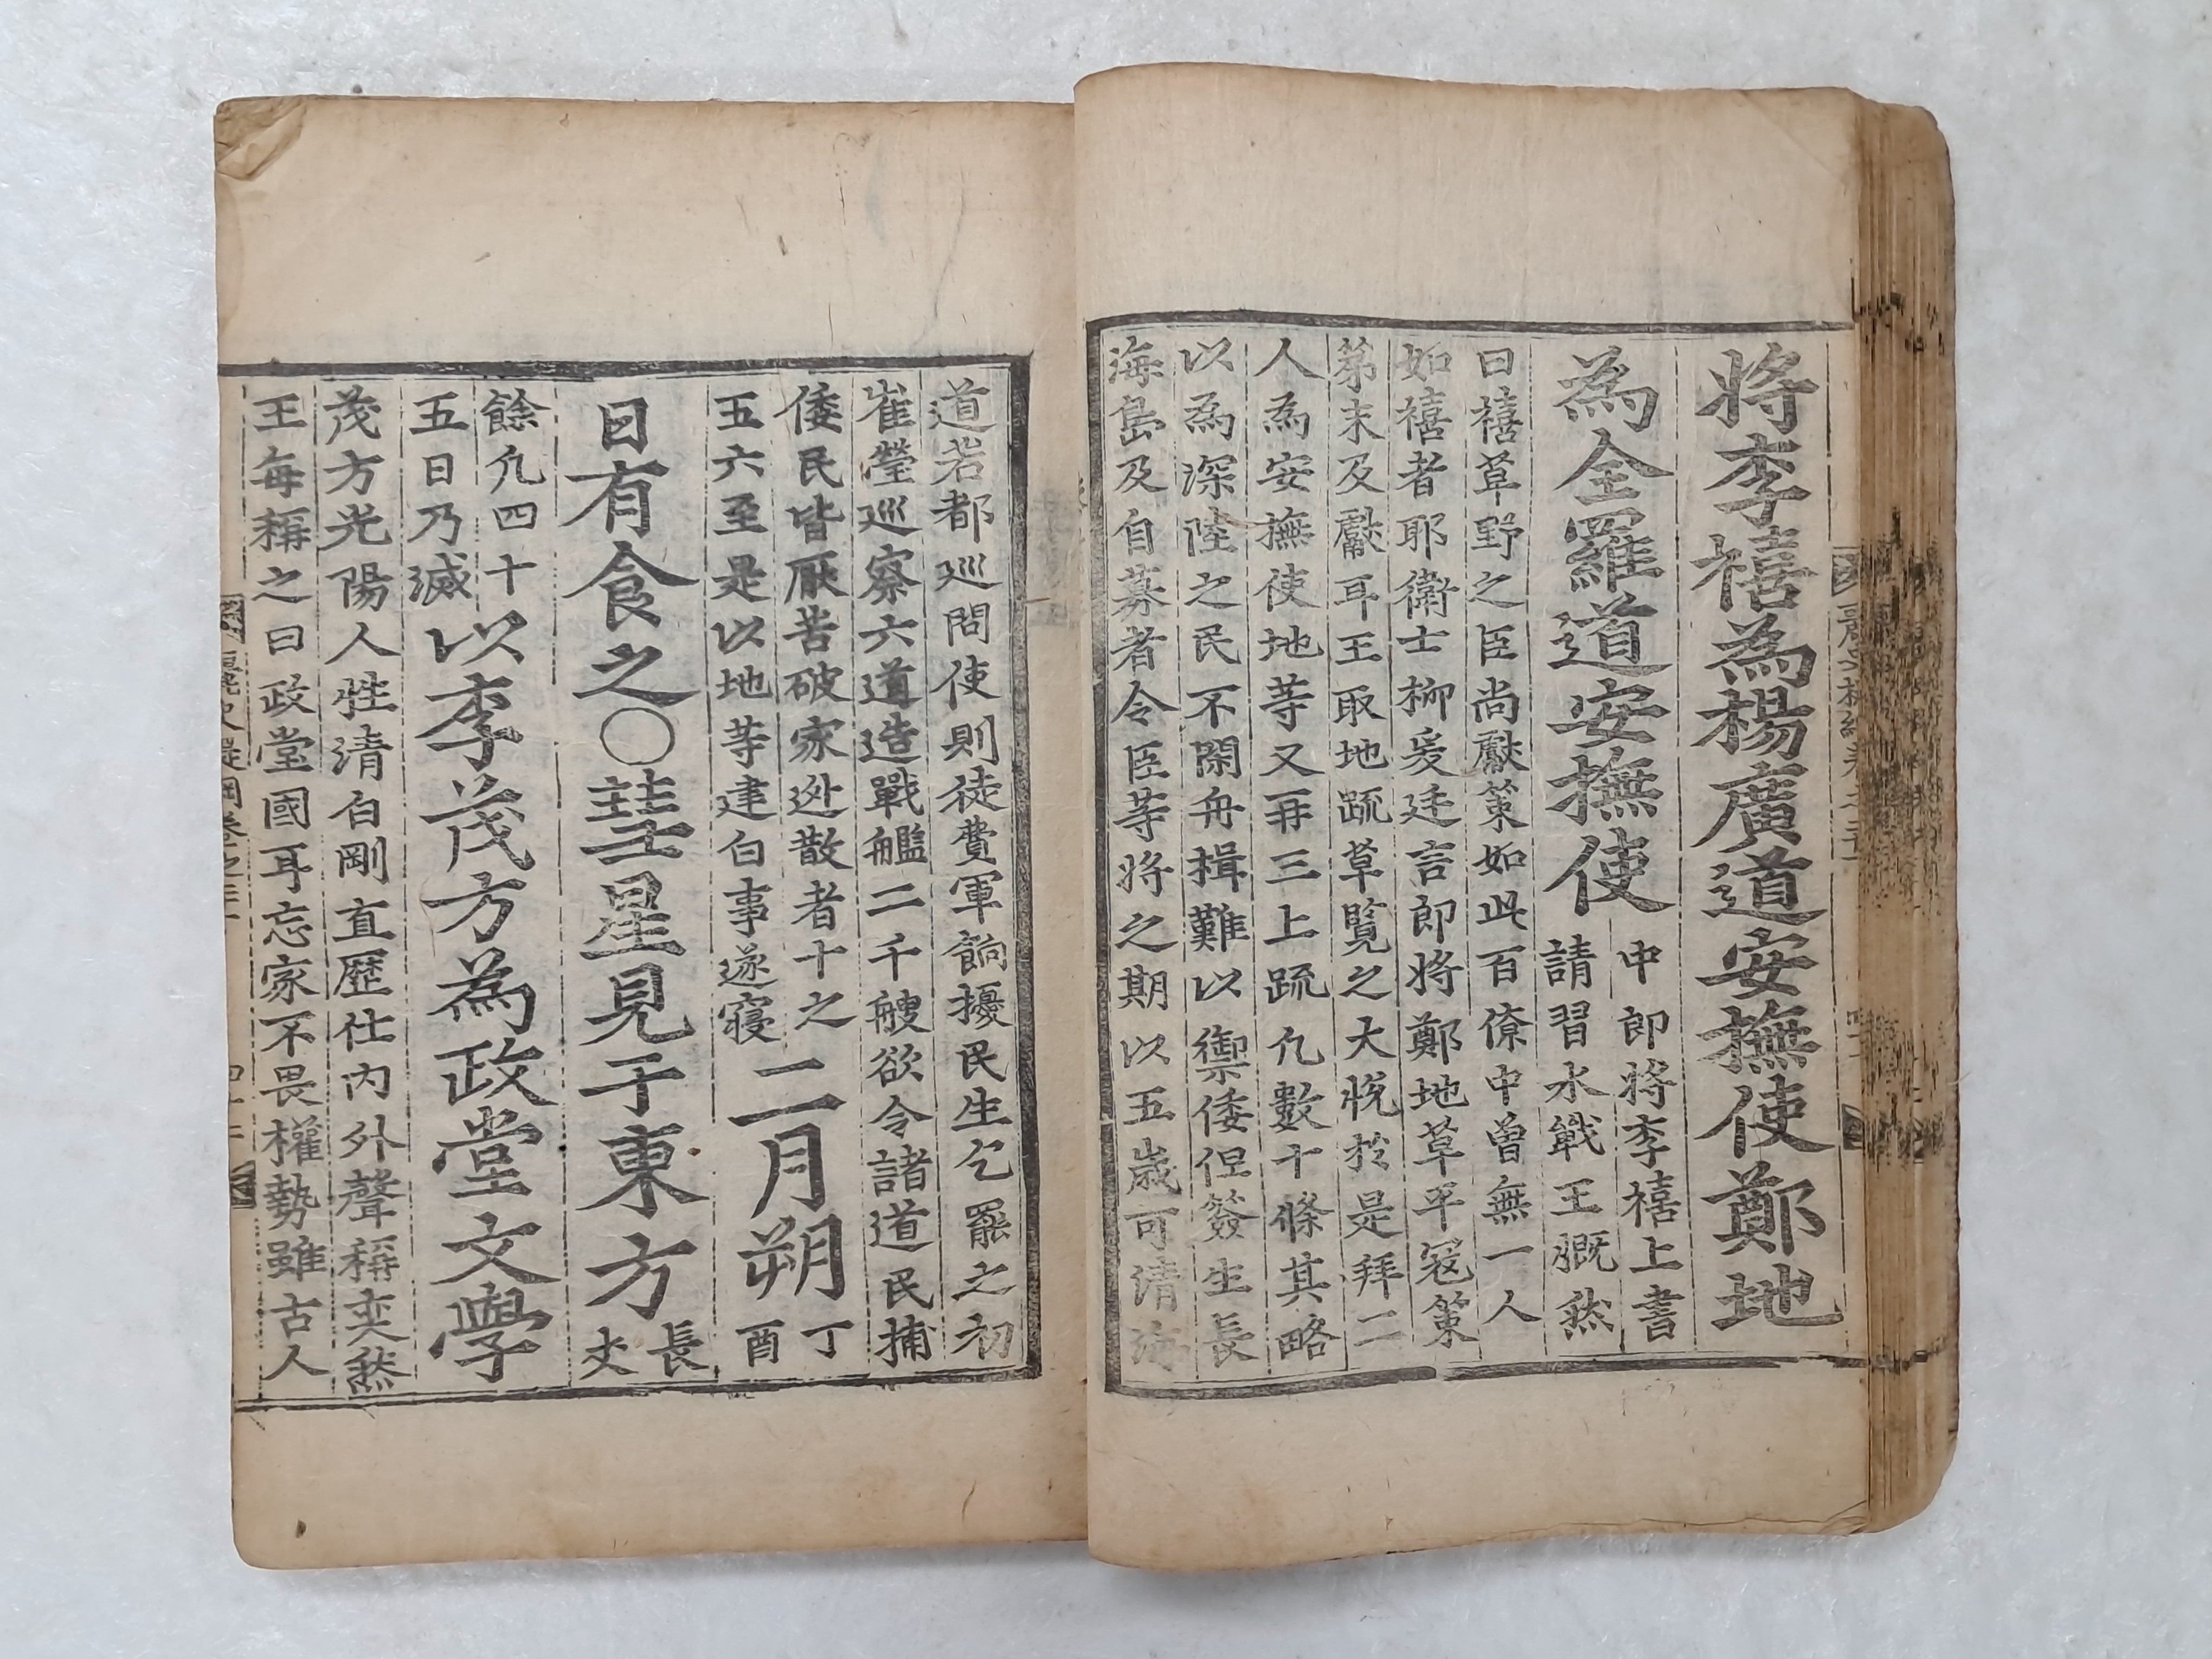 將李禧為楊廣道安撫使鄭地
為全羅道安撫使
中郎將李禧上書
請習水戰王慨然
曰禧草野之臣尚獻策如此百僚中曾無一人
如禧者耶衛士柳爰廷言郎將鄭地草平寇策
苐末及獻耳王取地䟽草覽之大悅於是拜二
人為安撫使地等又再三上䟽凢數十條其略
以為深陸之民不閑舟楫難以禦倭但簽生長
海島及自募者令臣等將之期以五歲可清海
道若都巡問使則徒費軍餉擾民生乞罷之初
崔瑩巡察六道造戰艦二千艘欲令諸道民捕
倭民皆厭苦破家迯散者十之
五六至是以地等建白事遂寢
二月朔
丁
酉
日有食之〇彗星見于東方
長
丈
餘凢四十
五日乃滅
以李茂方為政堂文學
茂方光陽人性清白剛直歷仕內外聲稱奕然
王每稱之曰政堂國耳忘家不畏權勢雖古人